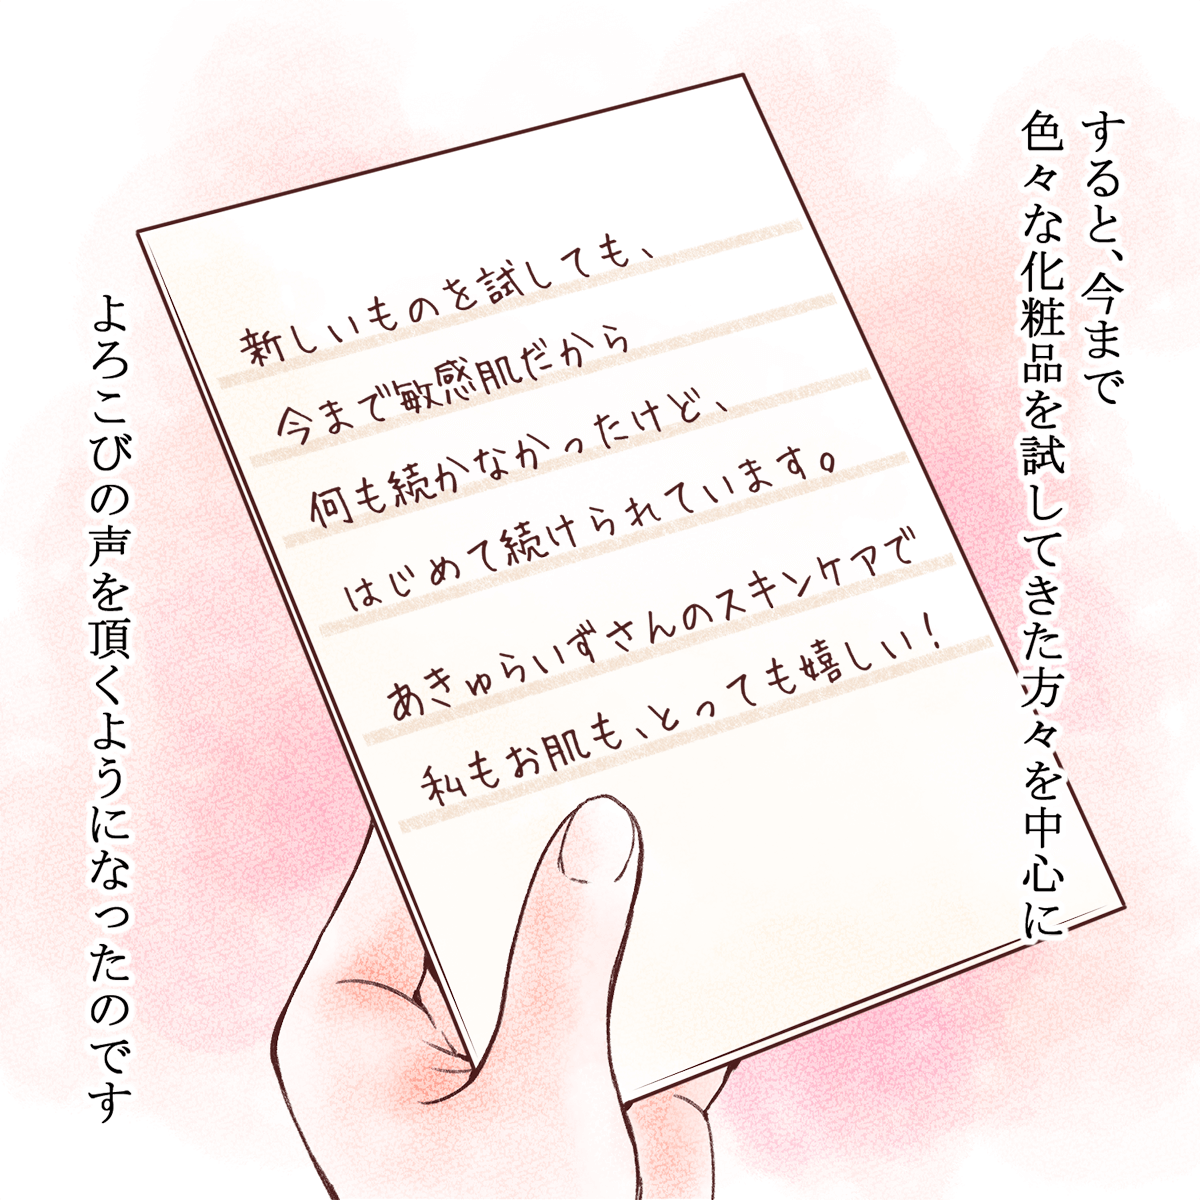 すると、今まで
色々な化粧品を試してきた方々を中心に
新しいものを試しても、
今まで敏感肌だから
何も続かなかったけど、
はじめて続けられています。
あきゅらいずさんのスキンケアで
私もお肌も、とっても嬉しい！
よろこびの声を頂くようになったのです